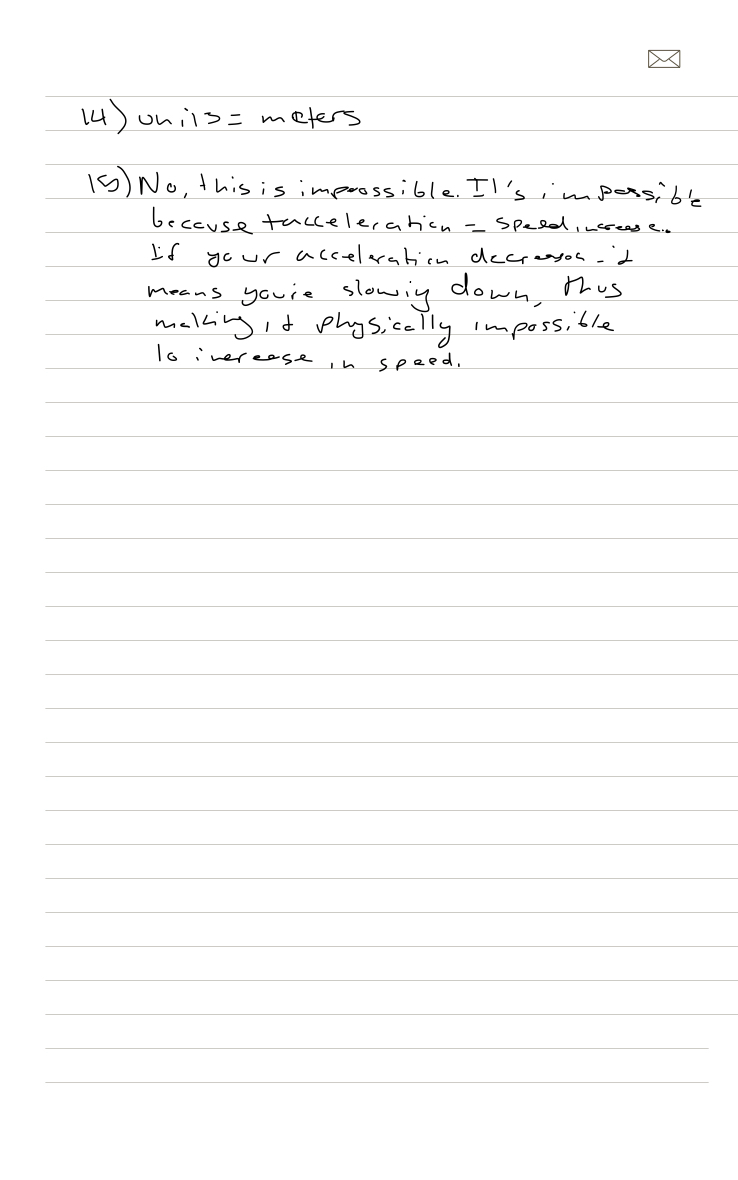 14) units = meters
15) No, this is impossible. It's impossible
because +acceleration = speed increase.
If your acceleration decreases it
means you're slowiy down, thus
making it physically impossible
to increase in speed.